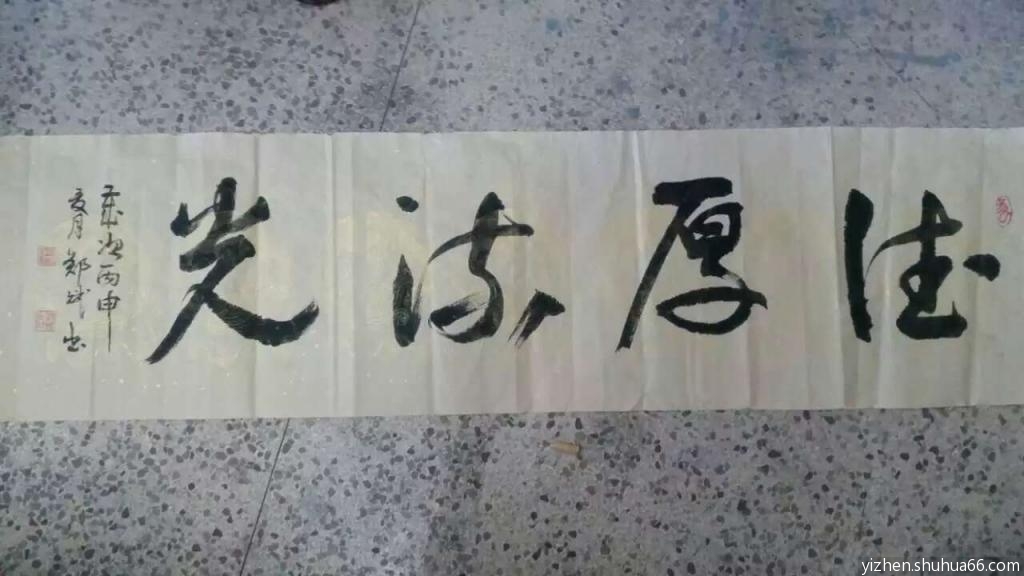 德厚流光
歲次丙申
夏月鄭
書
yizhen.shuhua66.com